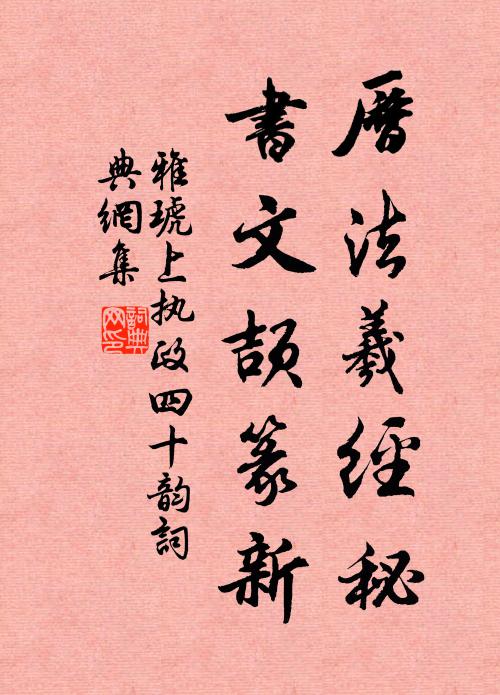 曆法羲經秘
書文頡篆新
雅琥上执政四十韵詞
典網集
詞典网印